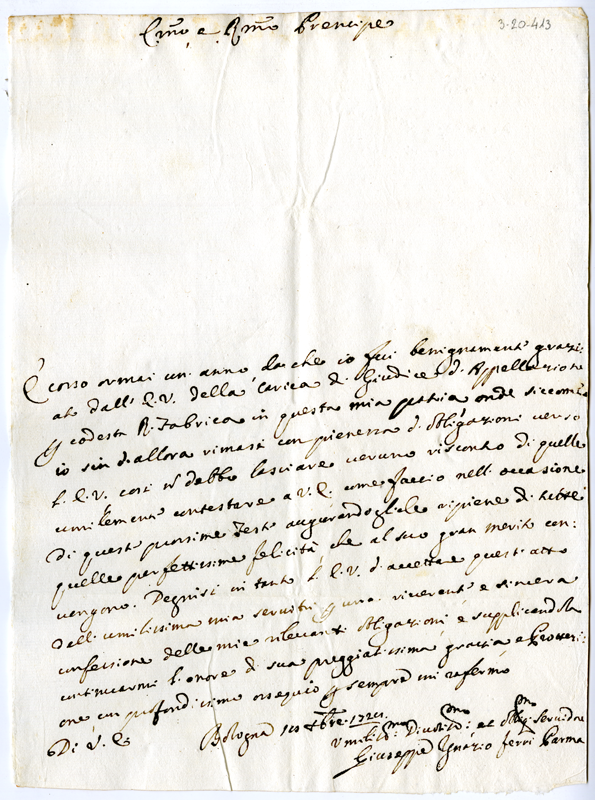 3-20-413
E.mo e R.mo Prencipe
È corso ormai un anno da che io fui benignamente grazi:
ato dall' E. V. della Carica di Giudice d'Appellazione
codesta R. Fabrica in questa mia patria onde siccome
io sin d'allora rimasi con pienezza d'obligazioni verso
l'E. V. così n̄ debbo lasciare veruno riscontro di quelle
umilemente contestare a V. E. come faccio nell'occasione
di queste prossime Feste augurandogliele ripiene di tutte
quelle perfettissime felicità che al suo gran merito con:
vengono. Degnisi in tanto l'E. V. d'accettare quest'atto
dell'umilissima mia servitù p una riverente e sincera
confessione delle mie rilevanti obligazioni e supplicandola
continuarmi l'onore di sua preggiatissima grazia e Protezi:
one con profondissimo ossequio p sempre mi rafermo
Di V. E.
Bologna
Umilis.mo Divotis.mo et Obl.mo Servidore
Giuseppe Ignazio Ferri Parma